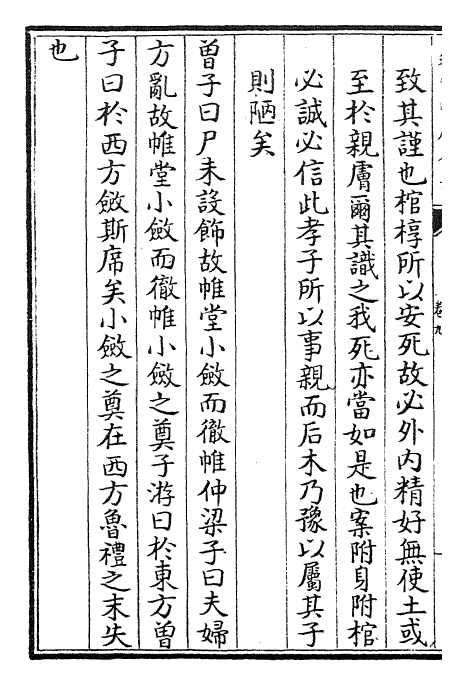 致其謹也棺椁所以安死故必外内精好無使土或
至於親膚爾其識之我死亦當如是也案附身附棺
必誠必信此孝子所以事親而后木乃豫以屬其子
則陋矣
曽子曰尸未設飾故帷堂小斂而徹帷仲梁子曰夫婦
方亂故帷堂小斂而徹帷小斂之奠子游曰於東方曽
子曰於西方斂斯席矣小斂之奠在西方魯禮之末失
也
卷九